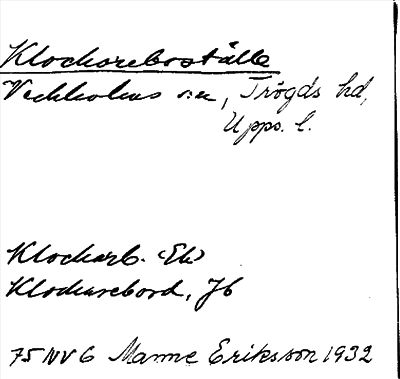 Klockareboställe
Veckholms sn, Trögds hd,
Upps. l.
Klockarb. (Ek)
Klockarebord, Jb
75 NV 6 Manne Eriksson 1932